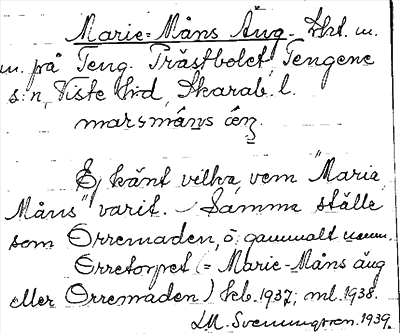 Marie-Måns Äng. Skt. m.
m. på Teng. Prästbolet, Tengene
s:n, Viste h:d, Skarab. l.
marsmáns ä́ŋ.
Ej känt vilka, vem "Maria
Måns" varit. Samma ställe
som Orremaden, ö. gammalt namn.
Orretorpet (= Marie-Måns äng
eller Orremaden)
1937; ml. 1938.
Svenungsson. 1939.